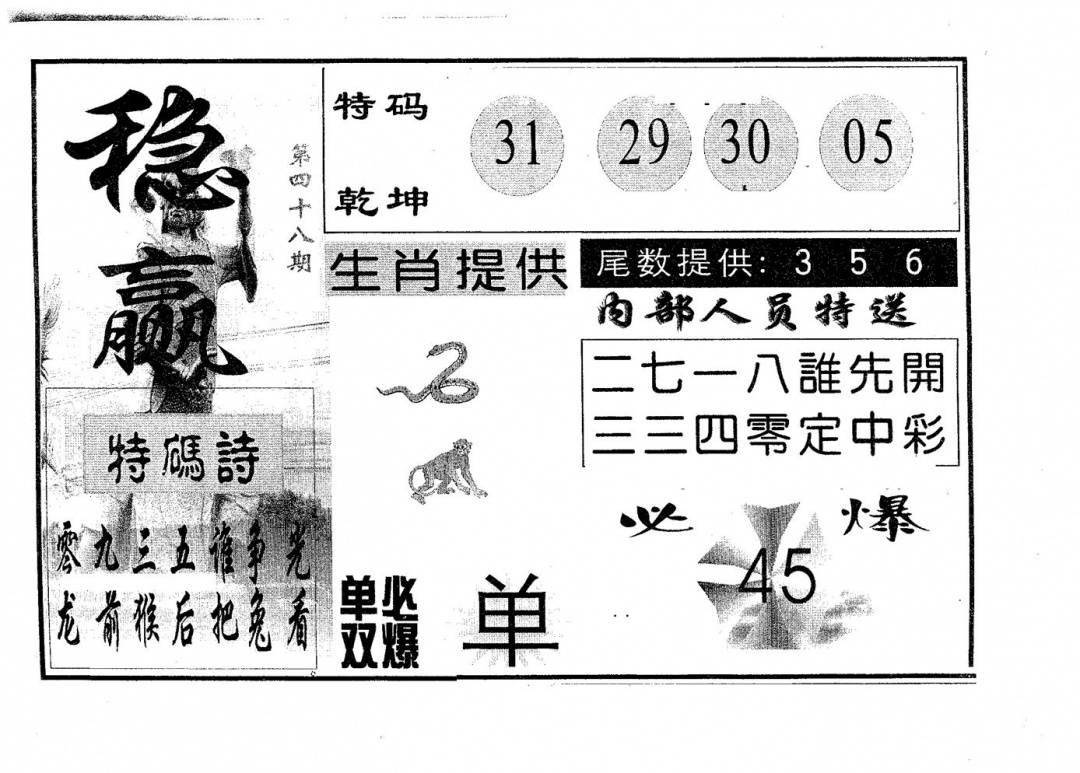 稳赢
第四十八期
特码诗
零九三五谁争光
龙前猴后把兔看
特码
乾坤
31 29 30 05
生肖提供
单双必爆
单
尾数提供: 3 5 6
内部人员特送
二七一八誰先開
三三四零定中彩
必爆
45